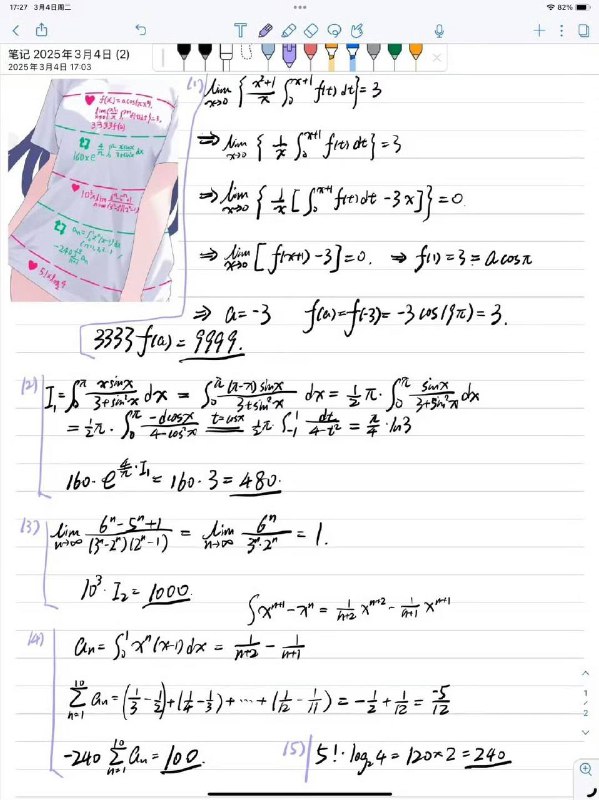 17:27 3月4日周二
82%
笔记 2025年3月4日 (2)
2025年3月4日 17:03
(1) lim x→0 { (x²+1)/x ∫₀^(x+1) f(t) dt } = 3
⇒ lim x→0 { 1/x ∫₀^(x+1) f(t) dt } = 3
⇒ lim x→0 { 1/x [ ∫₀^(x+1) f(t) dt - 3x ] } = 0
⇒ lim x→0 [ f(x+1) - 3 ] = 0. ⇒ f(1) = 3 = a cos π
⇒ a = -3 f(a) = f(-3) = -3 cos(9π) = 3.
3333 f(a) = 9999.
(2) I₁ = ∫₀^π x sinx/(3+sin²x) dx = ∫₀^π (π-x) sinx/(3+sin²x) dx = ½π · ∫₀^π sinx/(3+sin²x) dx
= ½π · ∫₀^π -dcosx/(4-cos²x) t=cosx ½π · ∫₋₁^1 dt/(4-t²) = π/4 · ln3
160 · e^(4/π · I₁) = 160 · 3 = 480.
(3) lim n→∞ (6ⁿ-5ⁿ+1)/((3ⁿ-2ⁿ)(2ⁿ-1)) = lim n→∞ 6ⁿ/(3ⁿ·2ⁿ) = 1.
10³ · I₂ = 1000.
∫ xⁿ⁺¹ - xⁿ = 1/(n+2) xⁿ⁺² - 1/(n+1) xⁿ⁺¹
(4) aₙ = ∫₀¹ xⁿ(x-1) dx = 1/(n+2) - 1/(n+1)
∑ₙ₌₁^10 aₙ = (1/3 - 1/2) + (1/4 - 1/3) + ··· + (1/12 - 1/11) = -1/2 + 1/12 = -5/12
-240 ∑ₙ₌₁^10 aₙ = 100.
(5) 5! · log₂4 = 120×2 = 240
1
2